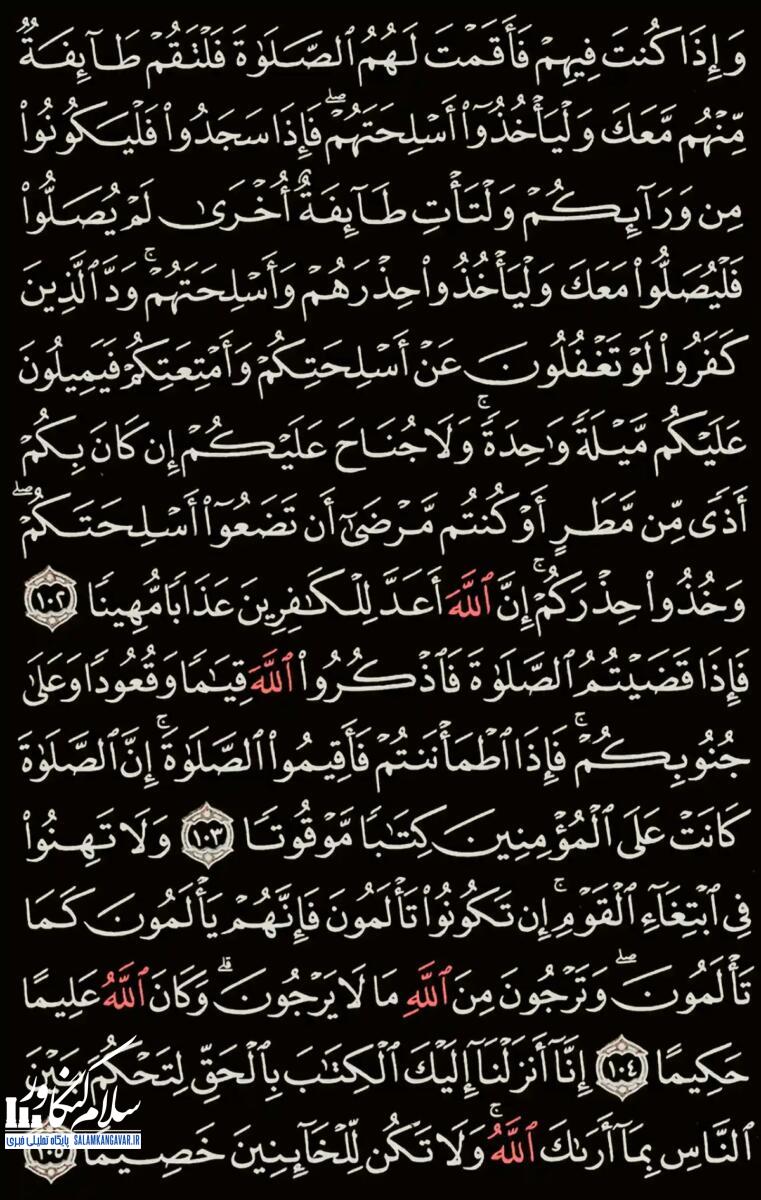 وَإِذَا كُنتَ فِيهِمْ فَأَقَمْتَ لَهُمُ ٱلصَّلَوٰةَ فَلْتَقُمْ طَآئِفَةٌ
مِّنْهُم مَّعَكَ وَلْيَأْخُذُوٓا۟ أَسْلِحَتَهُمْ ۖ فَإِذَا سَجَدُوا۟ فَلْيَكُونُوا۟
مِن وَرَآئِكُمْ وَلْتَأْتِ طَآئِفَةٌ أُخْرَىٰ لَمْ يُصَلُّوا۟
فَلْيُصَلُّوا۟ مَعَكَ وَلْيَأْخُذُوا۟ حِذْرَهُمْ وَأَسْلِحَتَهُمْ ۗ وَدَّ ٱلَّذِينَ
كَفَرُوا۟ لَوْ تَغْفُلُونَ عَنْ أَسْلِحَتِكُمْ وَأَمْتِعَتِكُمْ فَيَمِيلُونَ
عَلَيْكُم مَّيْلَةً وَٰحِدَةً ۚ وَلَا جُنَاحَ عَلَيْكُمْ إِن كَانَ بِكُمْ
أَذًى مِّن مَّطَرٍ أَوْ كُنتُم مَّرْضَىٰٓ أَن تَضَعُوٓا۟ أَسْلِحَتَكُمْ ۖ
وَخُذُوا۟ حِذْرَكُمْ ۗ إِنَّ ٱللَّهَ أَعَدَّ لِلْكَـٰفِرِينَ عَذَابًا مُّهِينًا ١٠٢
فَإِذَا قَضَيْتُمُ ٱلصَّلَوٰةَ فَٱذْكُرُوا۟ ٱللَّهَ قِيَـٰمًا وَقُعُودًا وَعَلَىٰ
جُنُوبِكُمْ ۚ فَإِذَا ٱطْمَأْنَنتُمْ فَأَقِيمُوا۟ ٱلصَّلَوٰةَ ۚ إِنَّ ٱلصَّلَوٰةَ
كَانَتْ عَلَى ٱلْمُؤْمِنِينَ كِتَـٰبًا مَّوْقُوتًا ١٠٣ وَلَا تَهِنُوا۟
فِى ٱبْتِغَآءِ ٱلْقَوْمِ ۖ إِن تَكُونُوا۟ تَأْلَمُونَ فَإِنَّهُمْ يَأْلَمُونَ كَمَا
تَأْلَمُونَ ۖ وَتَرْجُونَ مِنَ ٱللَّهِ مَا لَا يَرْجُونَ ۗ وَكَانَ ٱللَّهُ عَلِيمًا
حَكِيمًا ١٠٤ إِنَّآ أَنزَلْنَآ إِلَيْكَ ٱلْكِتَـٰبَ بِٱلْحَقِّ لِتَحْكُمَ بَيْنَ
ٱلنَّاسِ بِمَآ أَرَىٰكَ ٱللَّهُ ۚ وَلَا تَكُن لِّلْخَآئِنِينَ خَصِيمًا ١٠٥
سلام کنگاور
پایگاه تحلیلی خبری SALAMKANGAVAR.IR